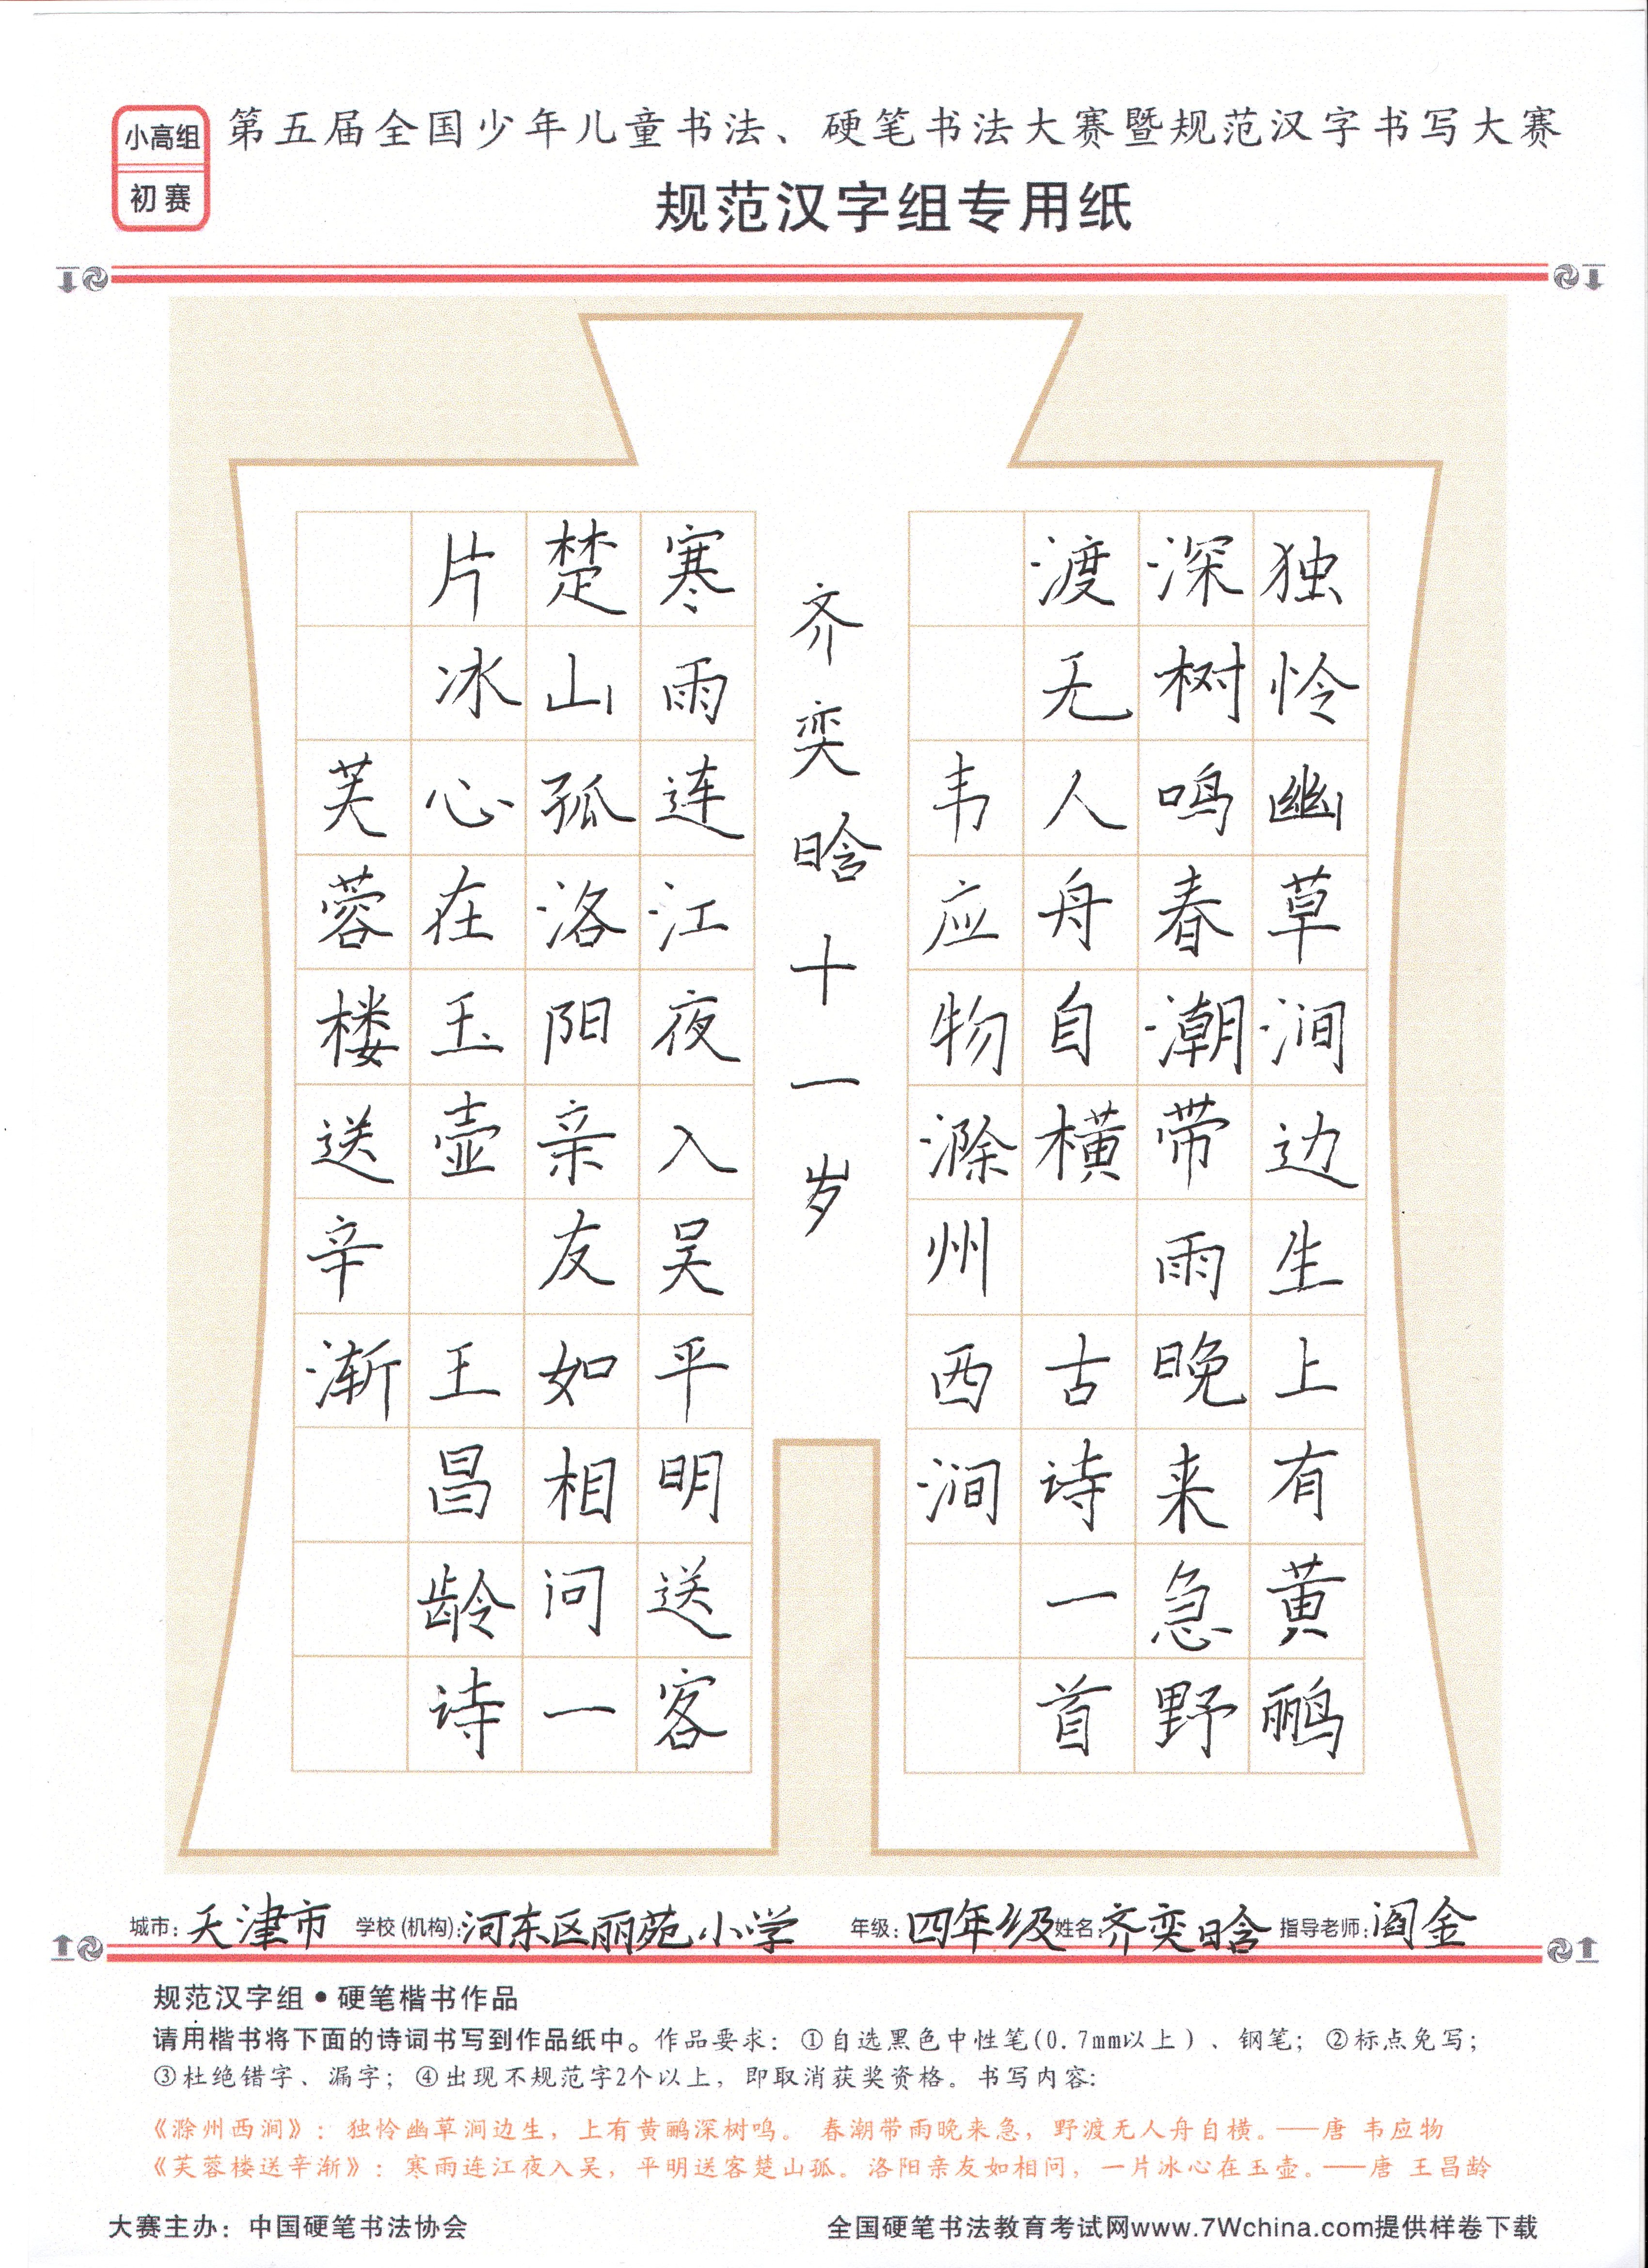 小高组
初赛
第五届全国少年儿童书法、硬笔书法大赛暨规范汉字书写大赛
规范汉字组专用纸
独怜幽草涧边生上有黄鹂
深树鸣春潮带雨晚来急野
渡无人舟自横 古诗一首
韦应物滁州西涧
齐奕晗十一岁
寒雨连江夜入吴平明送客
楚山孤洛阳亲友如相问一
片冰心在玉壶 王昌龄诗
芙蓉楼送辛渐
城市：天津市 学校(机构)：河东区丽苑小学 年级：四年级 姓名：齐奕晗 指导老师：阎金
规范汉字组•硬笔楷书作品
请用楷书将下面的诗词书写到作品纸中。作品要求：①自选黑色中性笔(0.7mm以上)、钢笔；②标点免写；
③杜绝错字、漏字；④出现不规范字2个以上，即取消获奖资格。书写内容：
《滁州西涧》：独怜幽草涧边生，上有黄鹂深树鸣。 春潮带雨晚来急，野渡无人舟自横。——唐 韦应物
《芙蓉楼送辛渐》：寒雨连江夜入吴，平明送客楚山孤。洛阳亲友如相问，一片冰心在玉壶。——唐 王昌龄
大赛主办：中国硬笔书法协会 全国硬笔书法教育考试网www.7Wchina.com提供样卷下载